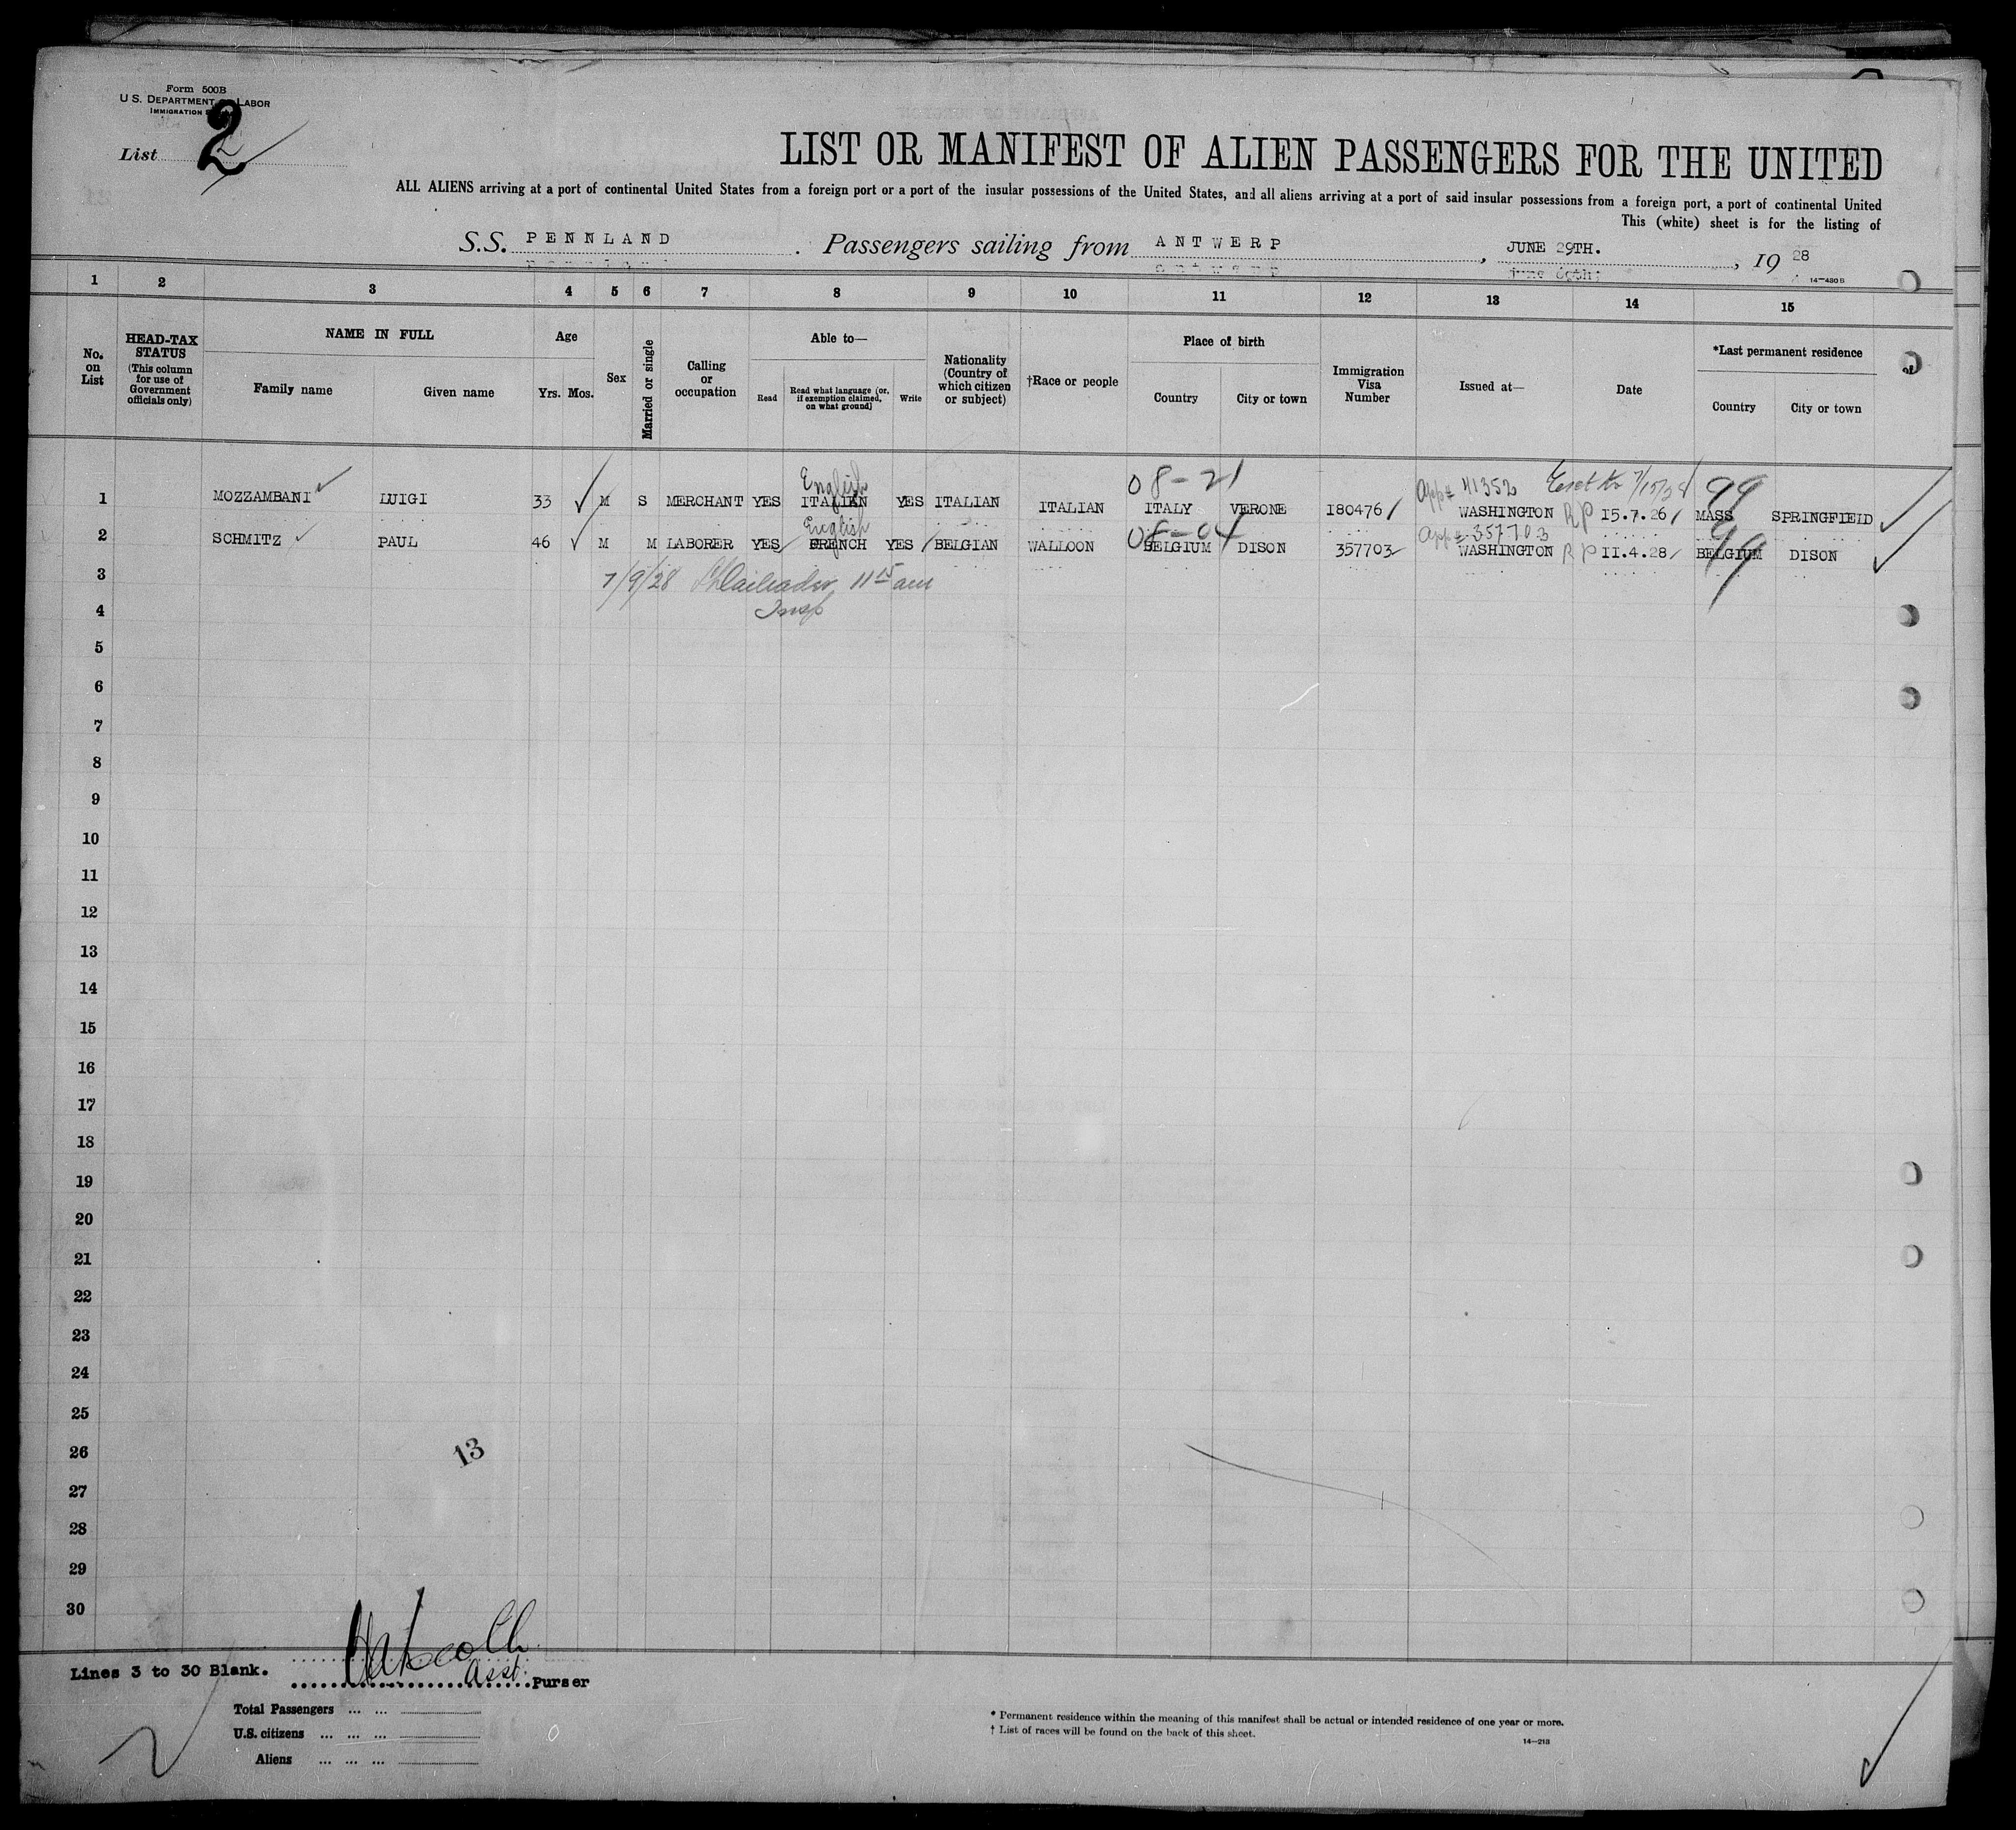 Form 500B
U.S. DEPARTMENT OF LABOR
IMMIGRATION
List 2
LIST OR MANIFEST OF ALIEN PASSENGERS FOR THE UNITED
ALL ALIENS arriving at a port of continental United States from a foreign port or a port of the insular possessions of the United States, and all aliens arriving at a port of said insular possessions from a foreign port, a port of continental United
This (white) sheet is for the listing of
S.S. PENNLAND. Passengers sailing from ANTWERP, JUNE 29TH., 19 28
14—430 B
1 2 3 4 5 6 7 8 9 10 11 12 13 14 15
No. on List
HEAD-TAX STATUS (This column for use of Government officials only)
NAME IN FULL
Family name Given name
Age
Yrs. Mos.
Sex
Married or single
Calling or occupation
Able to—
Read
Read what language (or, if exemption claimed, on what ground)
Write
Nationality (Country of which citizen or subject)
†Race or people
Place of birth
Country City or town
Immigration Visa Number
Issued at—
Date
*Last permanent residence
Country City or town
English 08-21 App# 41352 7/15/28 99
1 MOZZAMBANI LUIGI 33 M S MERCHANT YES ITALIAN YES ITALIAN ITALIAN ITALY VERONE I80476 WASHINGTON RP I5.7.26 MASS SPRINGFIELD
English 08-04 App# 357703 99
2 SCHMITZ PAUL 46 M M LABORER YES FRENCH YES BELGIAN WALLOON BELGIUM DISON 357703 WASHINGTON RP II.4.28 BELGIUM DISON
3 7/9/28 11 15 am
Insp
4
5
6
7
8
9
10
11
12
13
14
15
16
17
18
19
20
21
22
23
24
25
26
13
27
28
29
30
Lines 3 to 30 Blank. Asst. Purser
Total Passengers ... ...
U.S. citizens ... ... ...
Aliens ... ... ...
* Permanent residence within the meaning of this manifest shall be actual or intended residence of one year or more.
† List of races will be found on the back of this sheet.
14—213